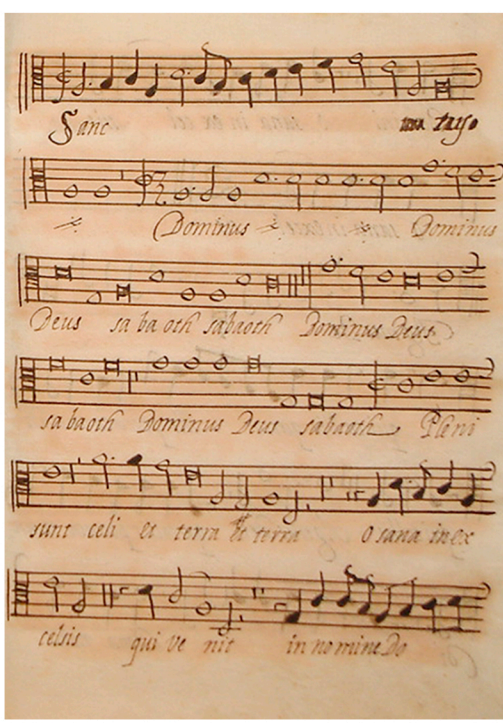 Sanc
Dominus Dominus
Deus sa ba oth sabaoth Dominus Deus
sa baoth Dominus Deus sabaoth Pleni
sunt celi et terra et terra O sana in ex
celsis qui ve nit in no mine Do